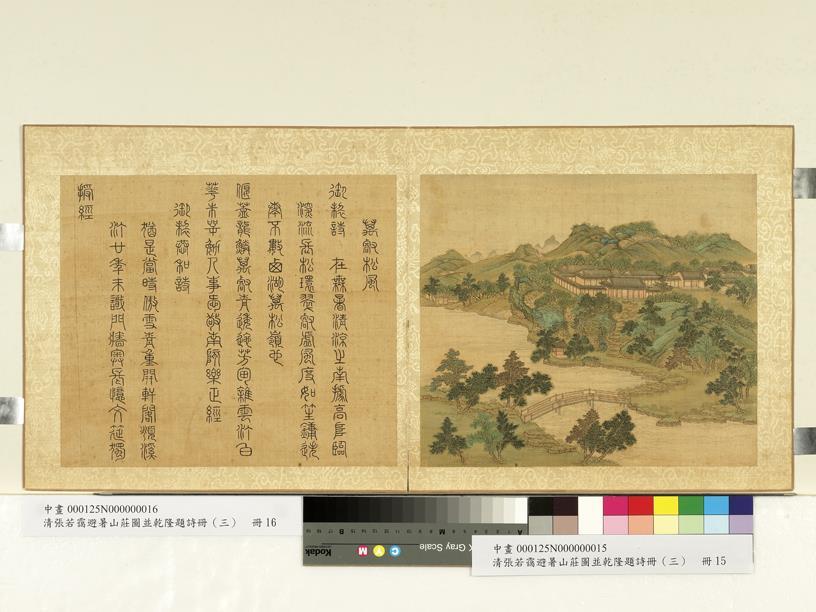 萬壑松風
御製詩 在無暑清涼之南據高阜臨
深流長松環翠壑虛風度如笙鏞迭
奏不數西湖萬松嶺也
偃蓋龍鱗萬壑青逶迤芳甸雜雲汀白
華朱萼勉人事愛敬南陔樂正經
御製恭和詩
猶是當時傲雪青重開軒閣俯溪
汀廿年未識門牆奧長憶文筵獨
授經
中畫 000125N000000016
清張若靄避暑山莊圖並乾隆題詩冊（三） 冊 16
Kodak
Gray Scale
C Y M
中畫 000125N000000015
清張若靄避暑山莊圖並乾隆題詩冊（三） 冊 15